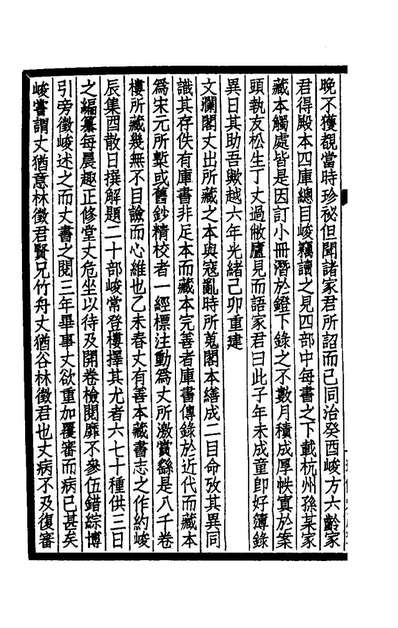 晚不獲覩當時珍祕但聞諸家君所詔而已同治癸酉峻方六齡家
君得殿本四庫總目峻竊讀之見四部中每書之下載杭州孫某家
藏本觸處皆是因訂小冊潛於鐙下錄之不數月積成厚帙寘於案
頭執友松生丁丈過敝廬見而語家君曰此子年未成童卽好簿錄
異日其助吾歟越六年光緒己卯重建
文瀾閣丈出所藏之本與寇亂時所蒐閣本繕成二目命攷其異同
識其存佚有庫書非足本而藏本完善者庫書傳錄於近代而藏本
爲宋元所槧或舊鈔精校者一經標注動爲丈所激賞繇是八千卷
樓所藏幾無不目諭而心維也乙未春丈有善本藏書志之作約峻
辰集酉散日撰解題二十部峻常登樓擇其尤者六七十種供三日
之編纂每晨趣正修堂丈危坐以待及開卷檢閱靡不參伍錯綜博
引旁徵峻述之而丈書之閱三年畢事丈欲重加覆審而病已甚矣
峻嘗謂丈猶意林徵君賢兄竹舟丈猶谷林徵君也丈病不及復審